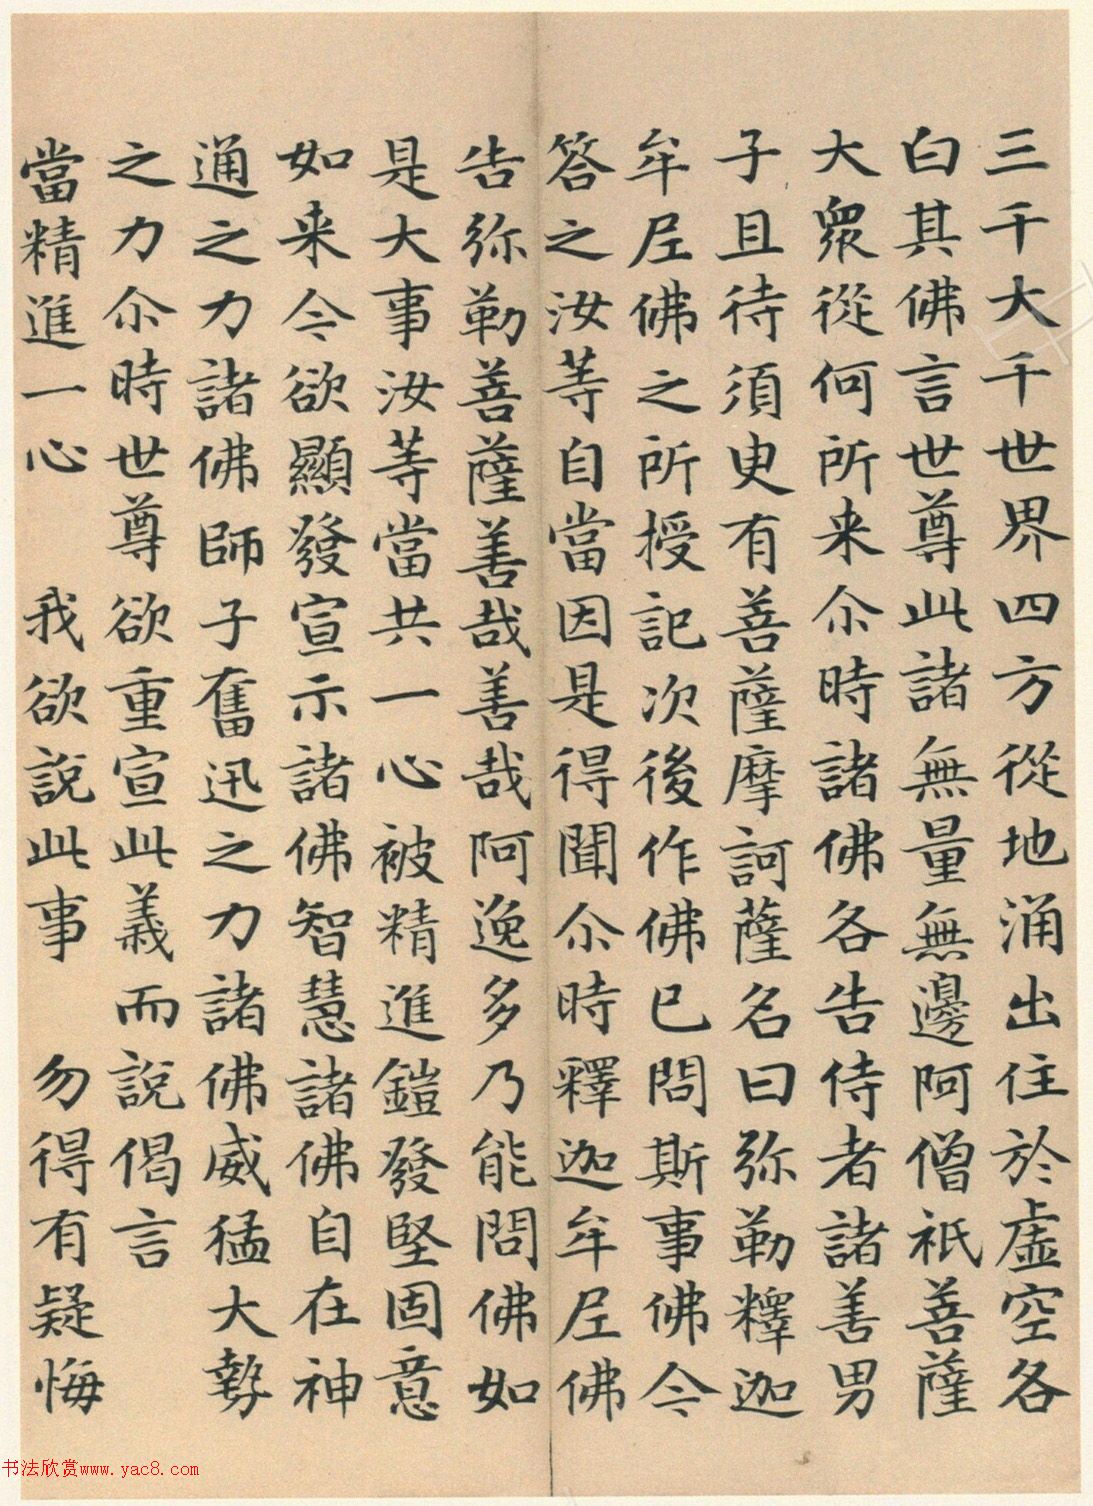 三千大千世界四方從地涌出住於虛空各
白其佛言世尊此諸無量無邊阿僧祇菩薩
大衆從何所来尒時諸佛各告侍者諸善男
子且待須臾有菩薩摩訶薩名曰弥勒釋迦
牟尼佛之所授記次後作佛已問斯事佛今
答之汝等自當因是得聞尒時釋迦牟尼佛
告弥勒菩薩善哉善哉阿逸多乃能問佛如
是大事汝等當共一心被精進鎧發堅固意
如来今欲顯發宣示諸佛智慧諸佛自在神
通之力諸佛師子奮迅之力諸佛威猛大勢
之力尒時世尊欲重宣此義而說偈言
當精進一心 我欲說此事 勿得有疑悔
书法欣赏www.yac8.com